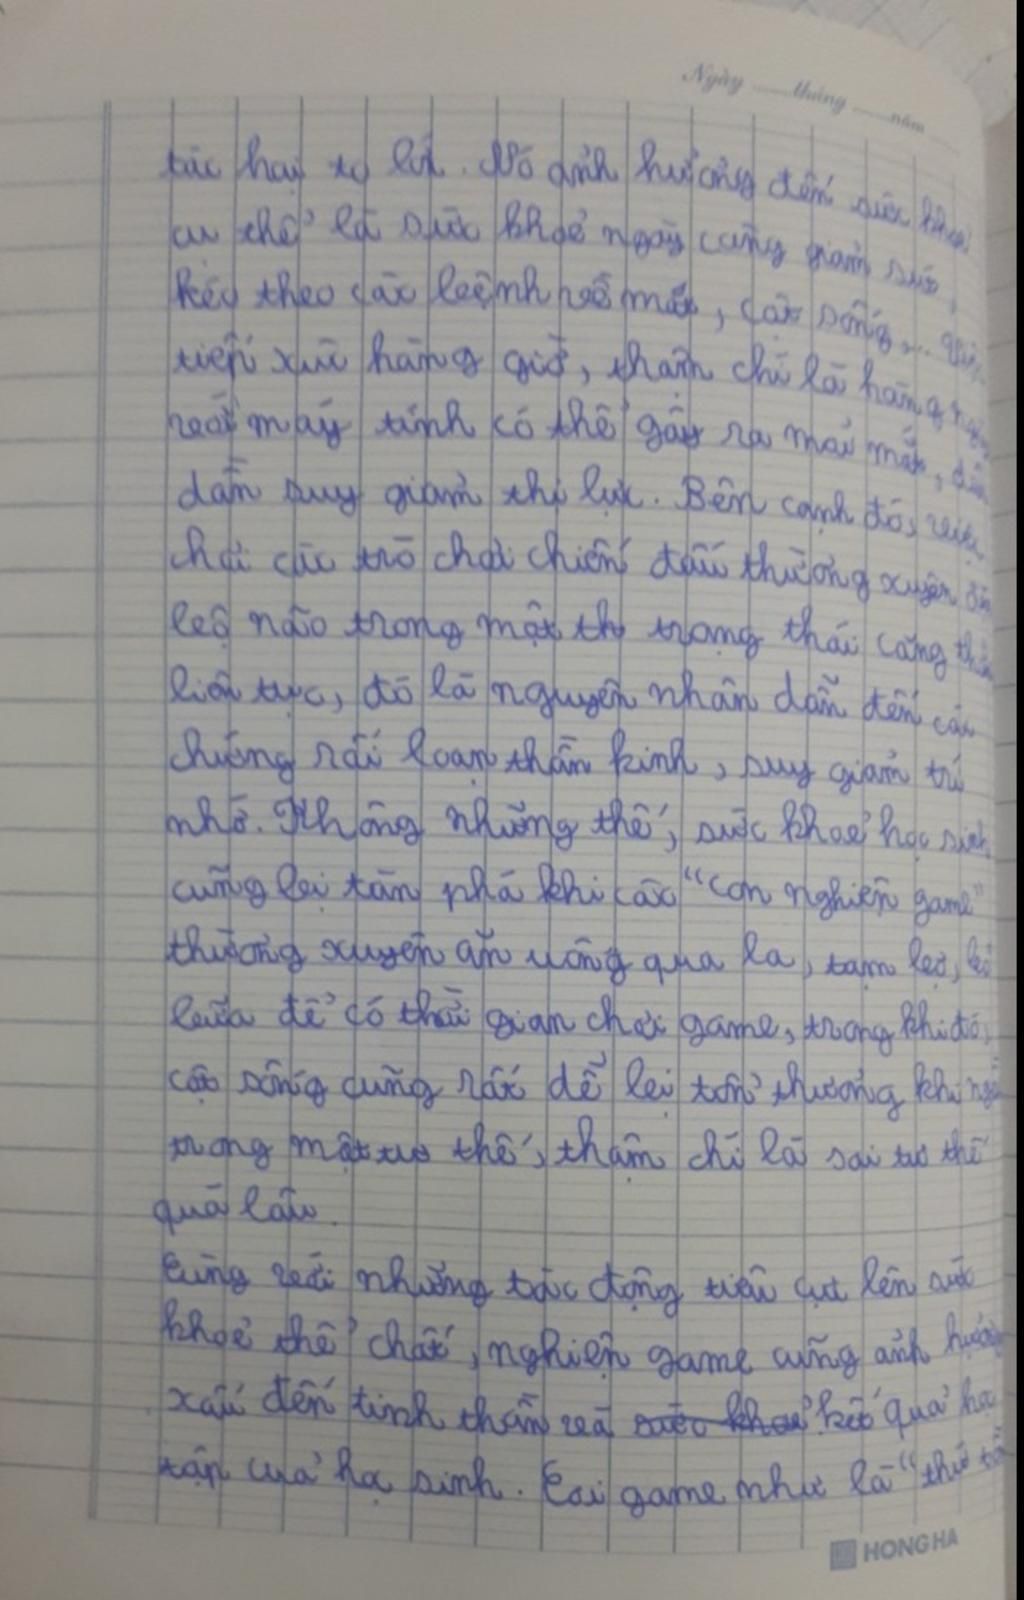 Ngày ..... tháng ..... năm .....
tác hại to lớn. Nó ảnh hưởng đến sức khoẻ
cụ thể là sức khoẻ ngày càng giảm sút,
kéo theo các bệnh về mắt, cột sống,...
tiếp xúc hàng giờ, thậm chí là hàng ngày
với máy tính có thể gây ra mỏi mắt, dẫn
dần suy giảm thị lực. Bên cạnh đó, việc
chơi các trò chơi chiến đấu thường xuyên
bộ não trong một th trạng thái căng thẳng
liên tục, đó là nguyên nhân dẫn đến các
chứng rối loạn thần kinh, suy giảm trí
nhớ. Không những thế, sức khoẻ học sinh
cũng bị tàn phá khi các "con nghiện game"
thường xuyên ăn uống qua loa, tạm bợ, bỏ
bữa để có thời gian chơi game, trong khi đó,
cột sống cũng rất dễ bị tổn thương khi ngồi
trong một tư thế, thậm chí là sai tư thế
quá lâu.
Cùng với những tác động tiêu cực lên sức
khoẻ thể chất, nghiện game cũng ảnh hưởng
xấu đến tinh thần và sức khoẻ kết quả học
tập của học sinh. Coi game như là "thứ
HONG HA